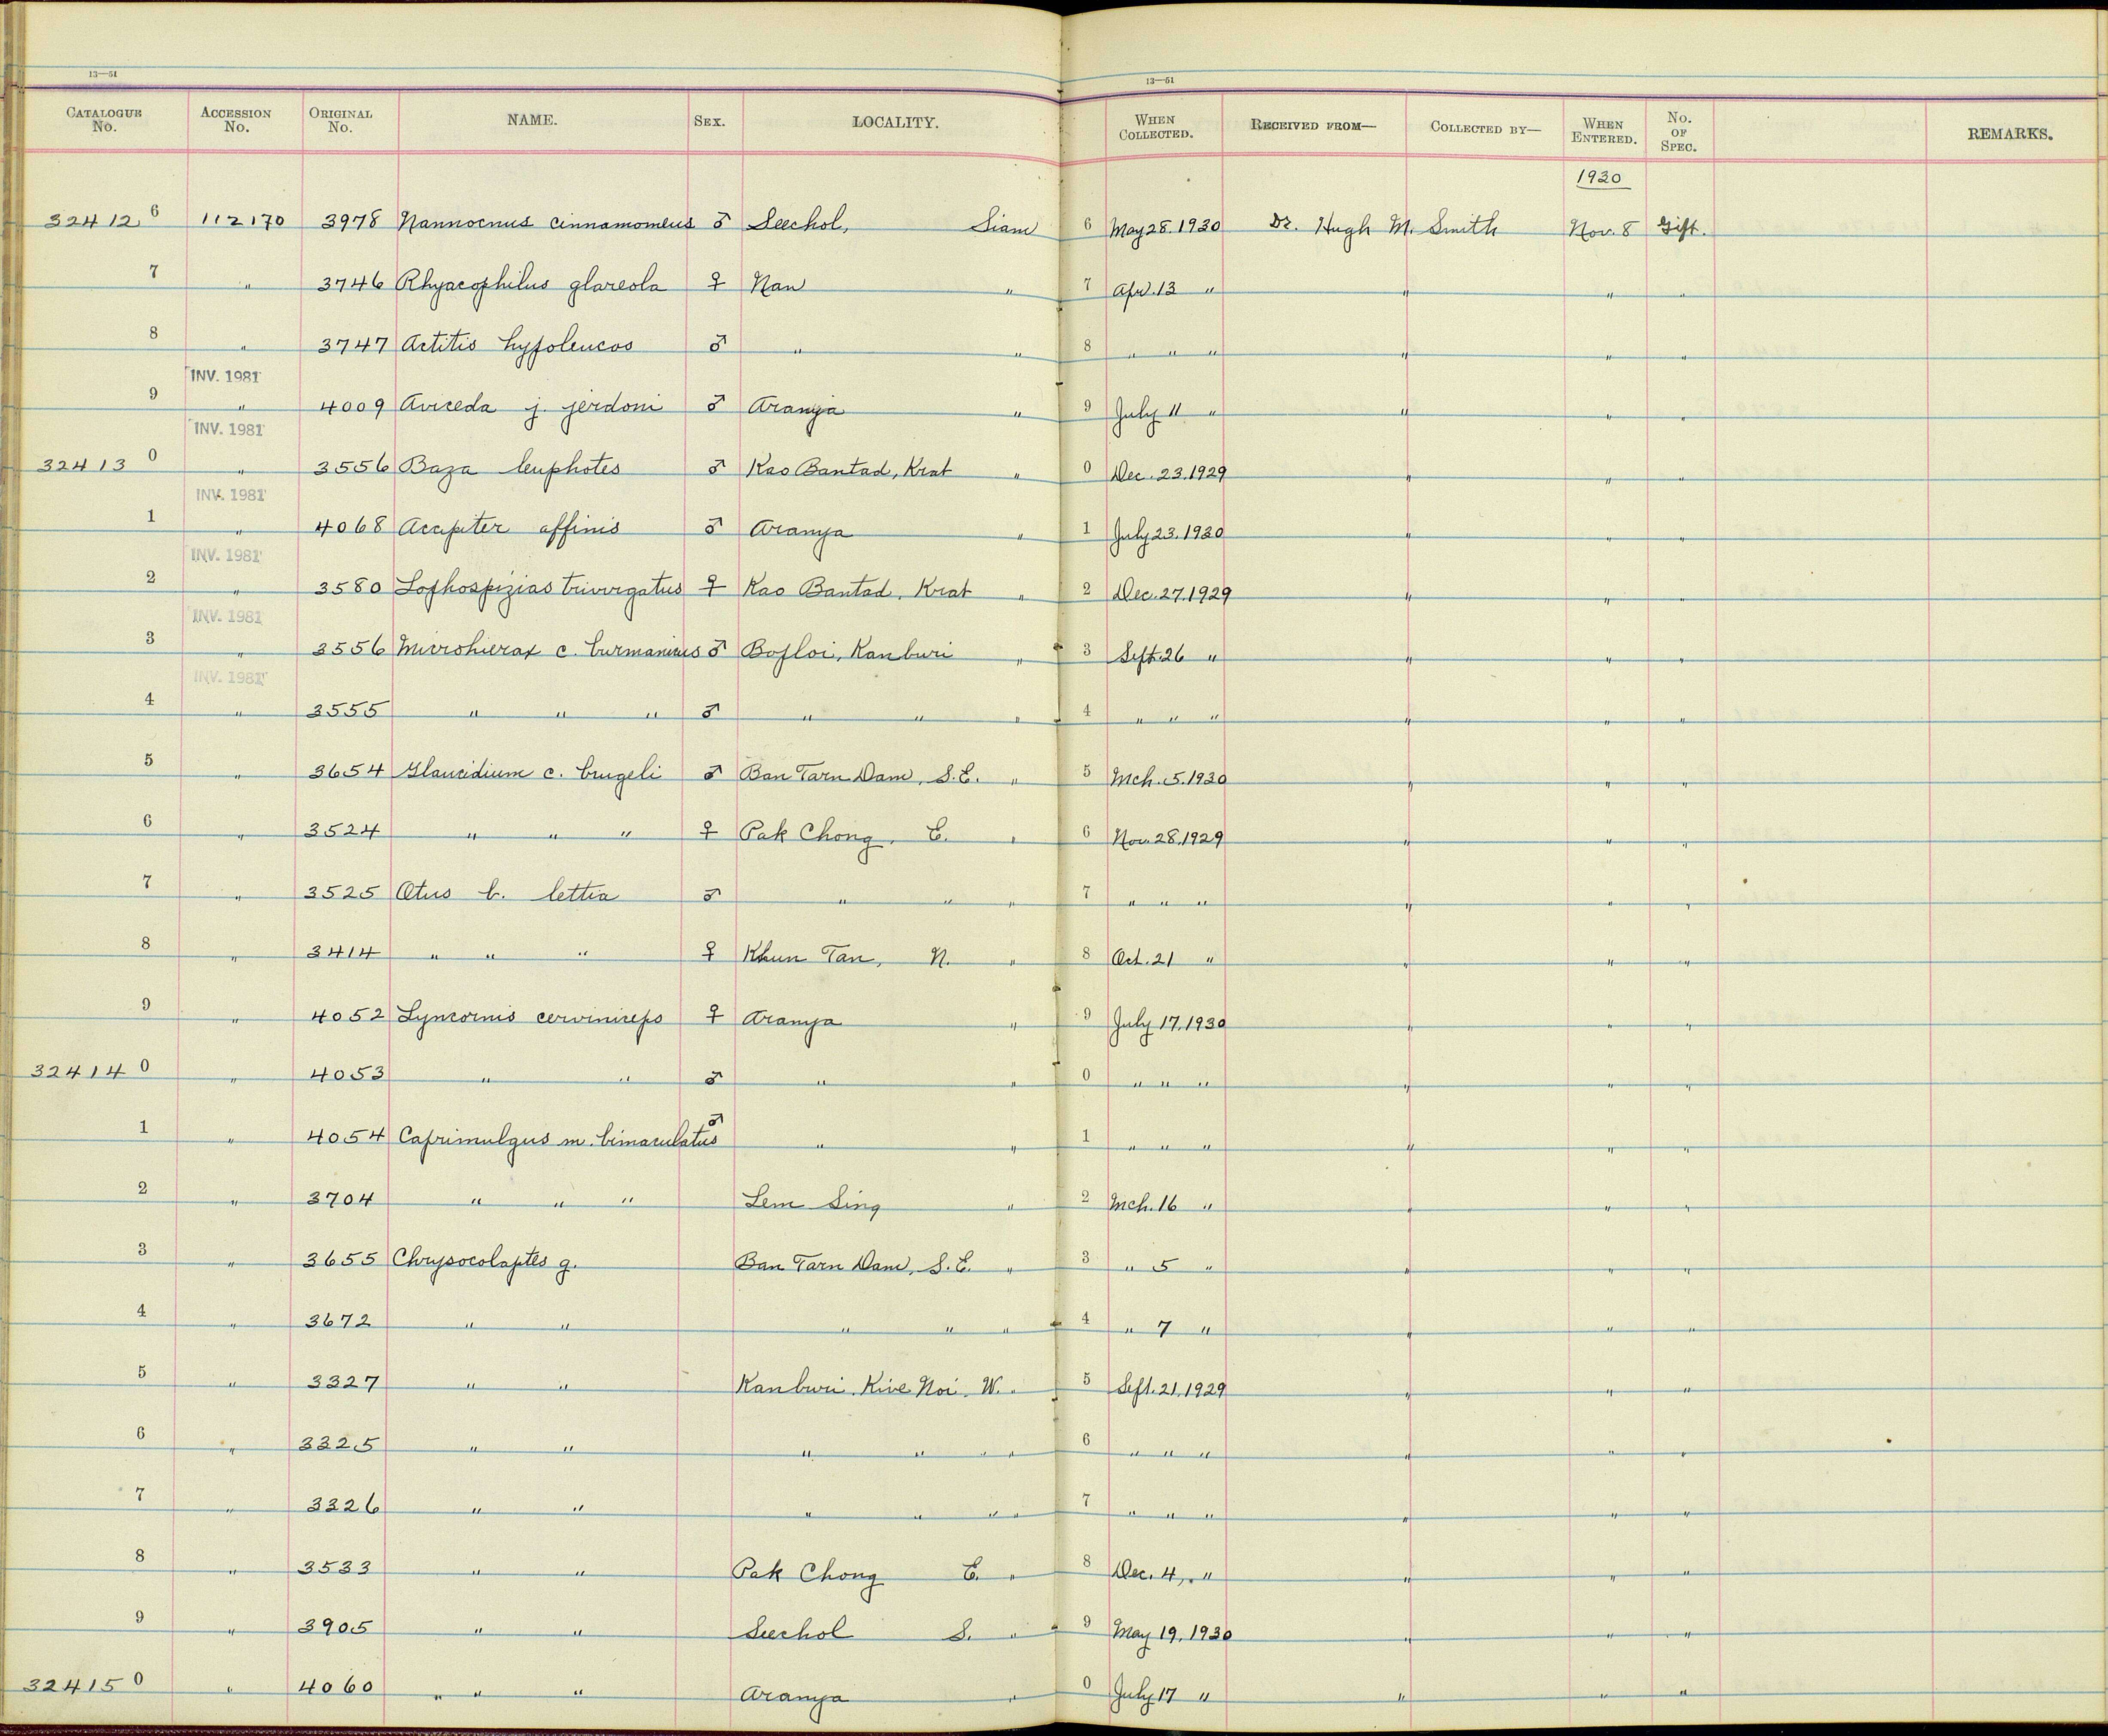 13—51 13—51
CATALOGUE No. ACCESSION No. ORIGINAL No. NAME. SEX. LOCALITY. WHEN COLLECTED. RECEIVED FROM— COLLECTED BY— WHEN ENTERED. No. OF SPEC. REMARKS.
1930
32412 6 112170 3978 Nannocnus cinnamomeus ♂ Seechol, Siam 6 May 28. 1930 Dr. Hugh M. Smith Nov. 8 Gift.
7 " 3746 Rhyacophilus glareola ♀ Nan " 7 Apr. 13 " " " "
8 " 3747 Actitis hypoleucos ♂ " " 8 " " " " " "
INV. 1981
9 " 4009 Aviceda j. jerdoni ♂ Aranya " 9 July 11 " " " "
INV. 1981
32413 0 " 3556 Baza leuphotes ♂ Kao Bantad, Krat " 0 Dec. 23. 1929 " " "
INV. 1981
1 " 4068 Accipiter affinis ♂ Aranya " 1 July 23. 1930 " " "
INV. 1981
2 " 3580 Lophospizias trivirgatus ♀ Kao Bantad, Krat " 2 Dec. 27. 1929 " " "
INV. 1981
3 " 3556 Microhierax c. burmanicus ♂ Bofloi, Kanburi " 3 Sept. 26 " " " "
INV. 1981
4 " 3555 " " " ♂ " " " 4 " " " " " "
5 " 3654 Glaucidium c. brugeli ♂ Ban Tarn Dam, S.E. " 5 Mch. 5. 1930 " " "
6 " 3524 " " " ♀ Pak Chong, E. " 6 Nov. 28. 1929 " " "
7 " 3525 Otus b. lettia ♂ " " " 7 " " " " " "
8 " 3414 " " " ♀ Khun Tan, N. " 8 Oct. 21 " " " "
9 " 4052 Lyncornis cerviniceps ♀ Aranya " 9 July 17. 1930 " " "
32414 0 " 4053 " " ♂ " " 0 " " " " " "
1 " 4054 Caprimulgus m. bimaculatus ♂ " " 1 " " " " " "
2 " 3704 " " " Lem Sing " 2 Mch. 16 " " " "
3 " 3655 Chrysocolaptes g. Ban Tarn Dam, S.E. " 3 " 5 " " " "
4 " 3672 " " " " " 4 " 7 " " " "
5 " 3327 " " Kanburi, Kive Noi, W. " 5 Sept. 21, 1929 " " "
6 " 3325 " " " " " " 6 " " " " " "
7 " 3326 " " " " " " 7 " " " " " "
8 " 3533 " " Pak Chong E. " 8 Dec. 4, " " " "
9 " 3905 " " Seechol S. " 9 May 19, 1930 " " "
32415 0 " 4060 " " " Aranya " 0 July 17 " " " "